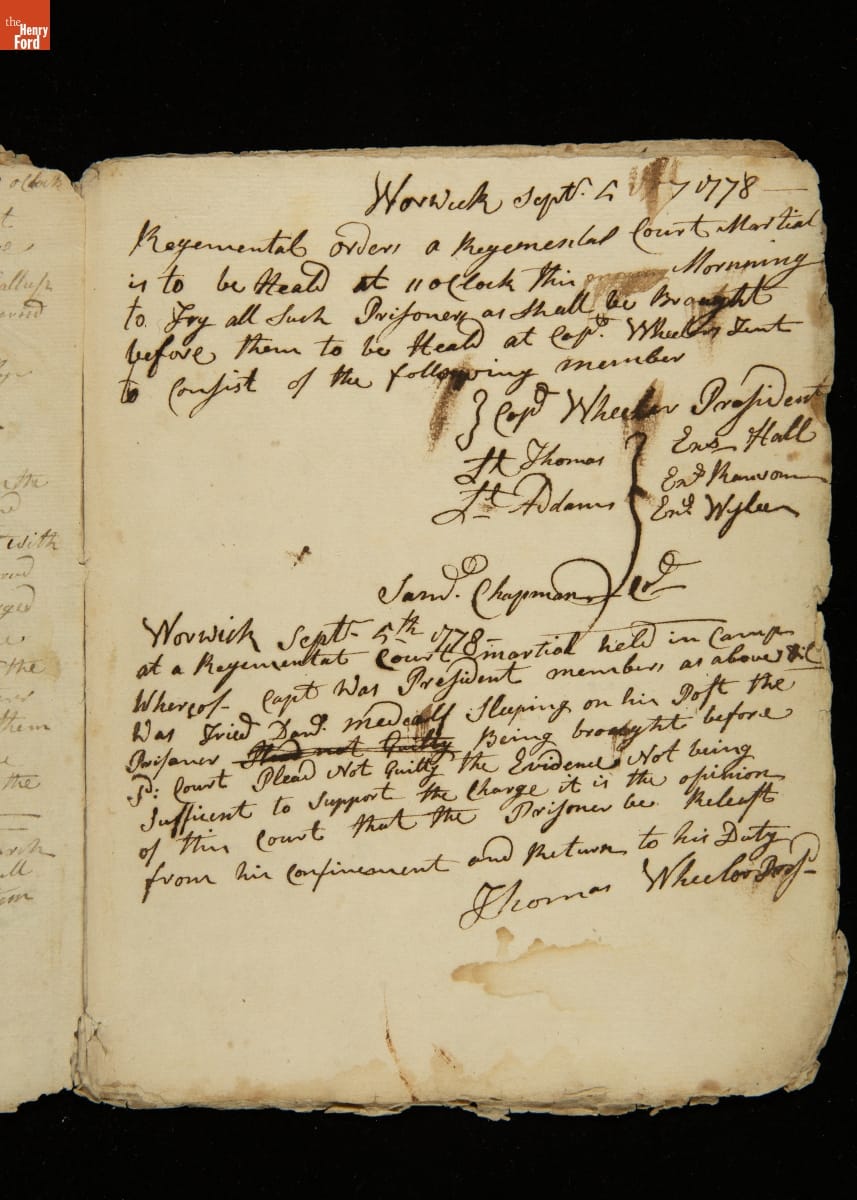 the
Henry
Ford
o Clock
with
the
them
the
Worwick Septr. 5 1778
Regemental orders a Regemental Court Martial
is to be Heald at 11 oClock this Mornning
to Try all Such Prisoners as Shall be Braught
before them to be Heald at Capt. Wheelers Tent
to Consist of the following member
} Capt Wheeler President
Lt Thomas } Ens Hall
Lt Addams Ens Ransom
Ens. Wylee
Saml. Chapman
Worwick Septr. 5th 1778
at a Regemental Court martial held in Camp
Whereof Capt Was President members as above
Was Tried Danl. Medcalf Sleeping on his Post the
Prisoner Plead not Guilty Being brought before
Sd: Court Plead Not Guilty the Evidence Not being
Sufficent to Support the Charge it is the opinion
of this Court that the Prisoner be Releast
from his Confinement and Return to his Duty
Thomas Wheeler Prest